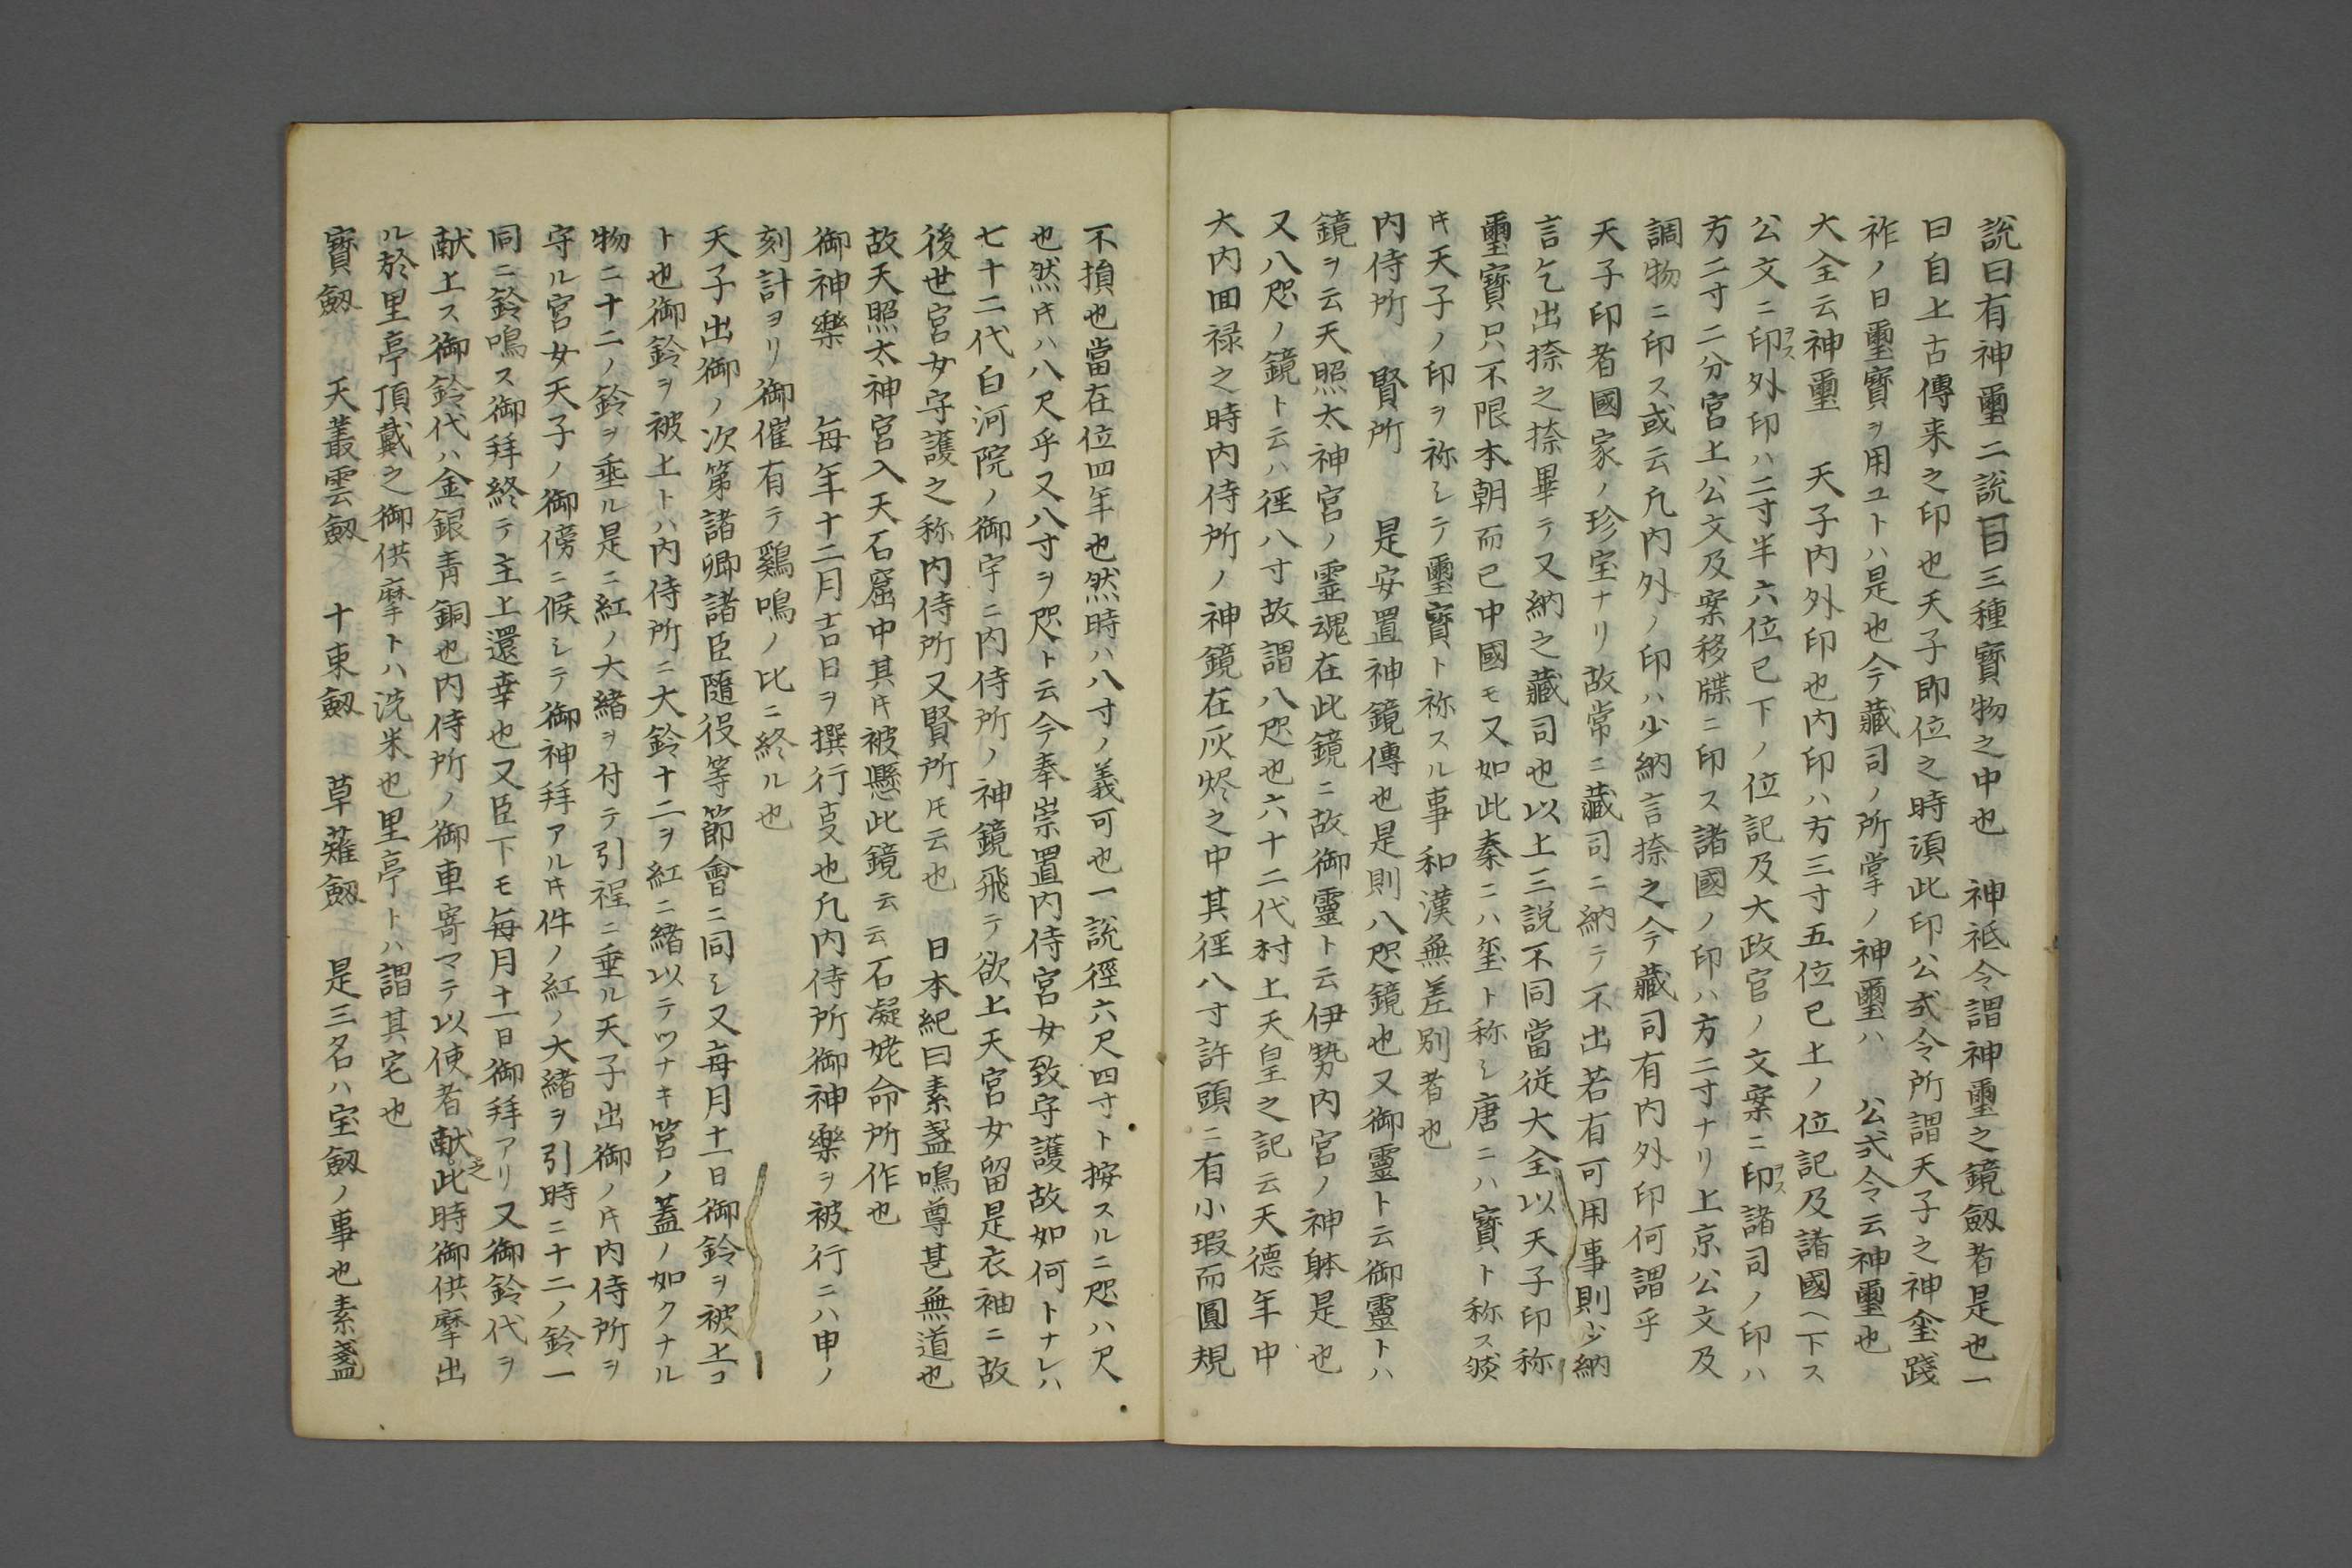 説曰有神璽二説一曰三種寳物之中也　神祇令謂神璽之鏡劔者是也一
曰自上古傳来之印也天子即位之時湏此印公式令所謂天子之神璽践
祚ノ日璽寳ヲ用ユトハ是也今藏司ノ所掌ノ神璽ハ　公式令云神璽也
大全云神璽　天子内外印也内印ハ方三寸五位已上ノ位記及諸國ヘ下ス
公文ニ印ヲス外印ハ二寸半六位已下ノ位記及大政官ノ文案ニ印ヲス諸司ノ印ハ
方二寸二分宮上公文及案移牒ニ印ス諸國ノ印ハ方二寸ナリ上京公文及
調物ニ印ス或云凡内外ノ印ハ少納言捺之今藏司有内外印何謂乎
天子印者國家ノ珍宝ナリ故常ニ藏司ニ納テ不出若有可用事則少納
言乞出捺之捺畢テ又納之藏司也以上三説不同當従大全以天子印称
璽寳只不限本朝而已中國モ又如此秦ニハ玺ト称シ唐ニハ寳ト称ス然
㐧天子ノ印ヲ祢シテ璽寳ト祢スル事和漢無差別者也
内侍所　賢所　是安置神鏡傳也是則八咫鏡也又御靈ト云御靈トハ
鏡ヲ云天照太神宮ノ霊魂在此鏡ニ故御靈ト云伊勢内宮ノ神躰是也
又八咫ノ鏡ト云ハ徑八寸故謂八咫也六十二代村上天皇之記云天德年中
大内囬禄之時内侍所ノ神鏡在灰烬之中其徑八寸許頭ニ有小瑕而圓規
不損也當在位四年也然時ハ八寸ノ義可也一説徑六尺四寸ト按スルニ咫ハ尺
也然㐧ハ八尺乎又八寸ヲ咫ト云今奉崇置内侍宮女致守護故如何トナレハ
七十二代白河院ノ御宇ニ内侍所ノ神鏡飛テ欲上天宮女留是衣袖ニ故
後世宮女守護之称内侍所又賢所㐧云也　日本紀曰素盞鳴尊甚無道也
故天照太神宮入天石窟中其㐧被懸此鏡云云石凝姥命所作也
御神樂　毎年十二月吉日ヲ撰行㕝也凡内侍所御神樂ヲ被行ニハ申ノ
刻計ヨリ御催有テ鷄鳴ノ比ニ終ル也
天子出御ノ次第諸卿諸臣隨役等節會ニ同シ又毎月十一日御鈴ヲ被上コ
ト也御鈴ヲ被上トハ内侍所ニ大鈴十二ヲ紅ニ緒以テツナキ筥ノ蓋ノ如クナル
物ニ十二ノ鈴ヲ垂ル是ニ紅ノ大緒ヲ付テ引程ニ垂ル天子出御ノ㐧内侍所ヲ
守ル宮女天子ノ御傍ニ候シテ御神拜アル㐧件ノ紅ノ大緒ヲ引時ニ十二ノ鈴一
同ニ鈴鳴ス御拜終テ主上還幸也又臣下モ毎月十一日御拜アリ又御鈴代ヲ
献上ス御鈴代ハ金銀青銅也内侍所ノ御車寄マテ以使者献之此時御供摩出
ル於里亭頂戴之御供摩トハ洗米也里亭トハ謂其宅也
寳劔　天叢雲劔　十束劔　草薙劔　是三名ハ宝劔ノ事也素盞